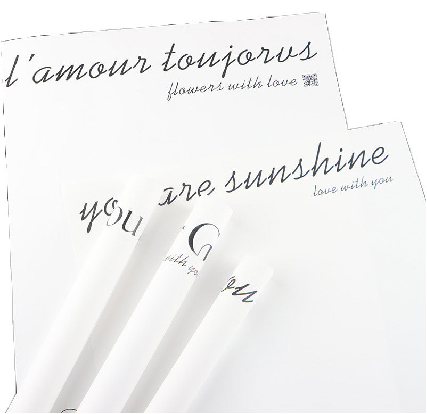 l'amour toujorvs
flowers with love
you are sunshine
love with you
G
with you